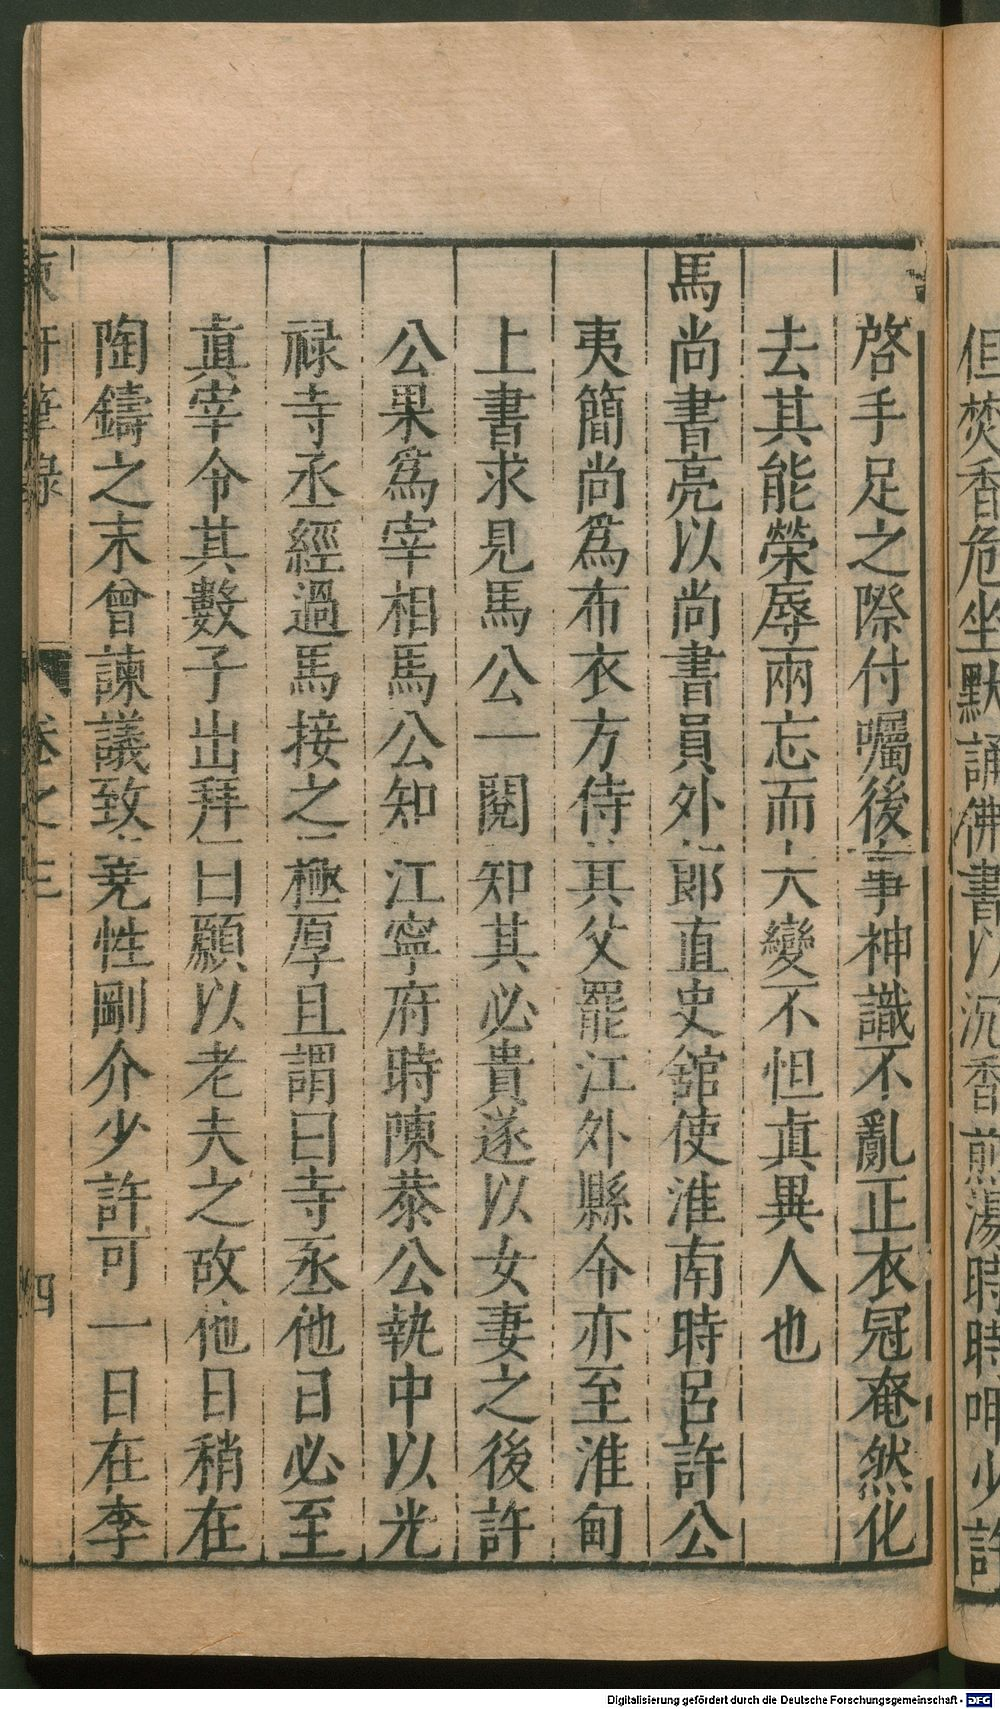 但焚香危坐默誦佛書以沉香煎湯時時呷少許
啓手足之際付囑後事神識不亂正衣冠奄然化
去其能榮辱兩忘而大變不怛真異人也
馬尚書亮以尚書員外郎直史館使淮南時呂許公
夷簡尚爲布衣方侍其父罷江外縣令亦至淮甸
上書求見馬公一閱知其必貴遂以女妻之後許
公果爲宰相馬公知江寧府時陳恭公執中以光
禄寺丞經過馬接之極厚且謂曰寺丞他日必至
真宰令其數子出拜曰願以老夫之故他日稍在
陶鑄之末曾諫議致堯性剛介少許可一日在李
東軒筆錄 卷之三 四
Digitalisierung gefördert durch die Deutsche Forschungsgemeinschaft - DFG